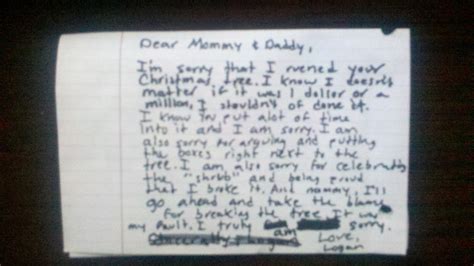 Dear Mommy & Daddy,
I'm sorry that I ruened your
Christmas tree. I know I doesn't
matter if it was 1 doller or a
million, I shouldn't of done it.
I know you put alot of time
into it and I am sorry. I am
also sorry for arguing and putting
the boxes right next to the
tree. I am also sorry for celebrating
the "shrbb" and being proud
that I broke it. And mommy, I'll
go ahead and take the blame
for breaking the tree. It was
my fault. I truly am sorry.
Love,
Logan